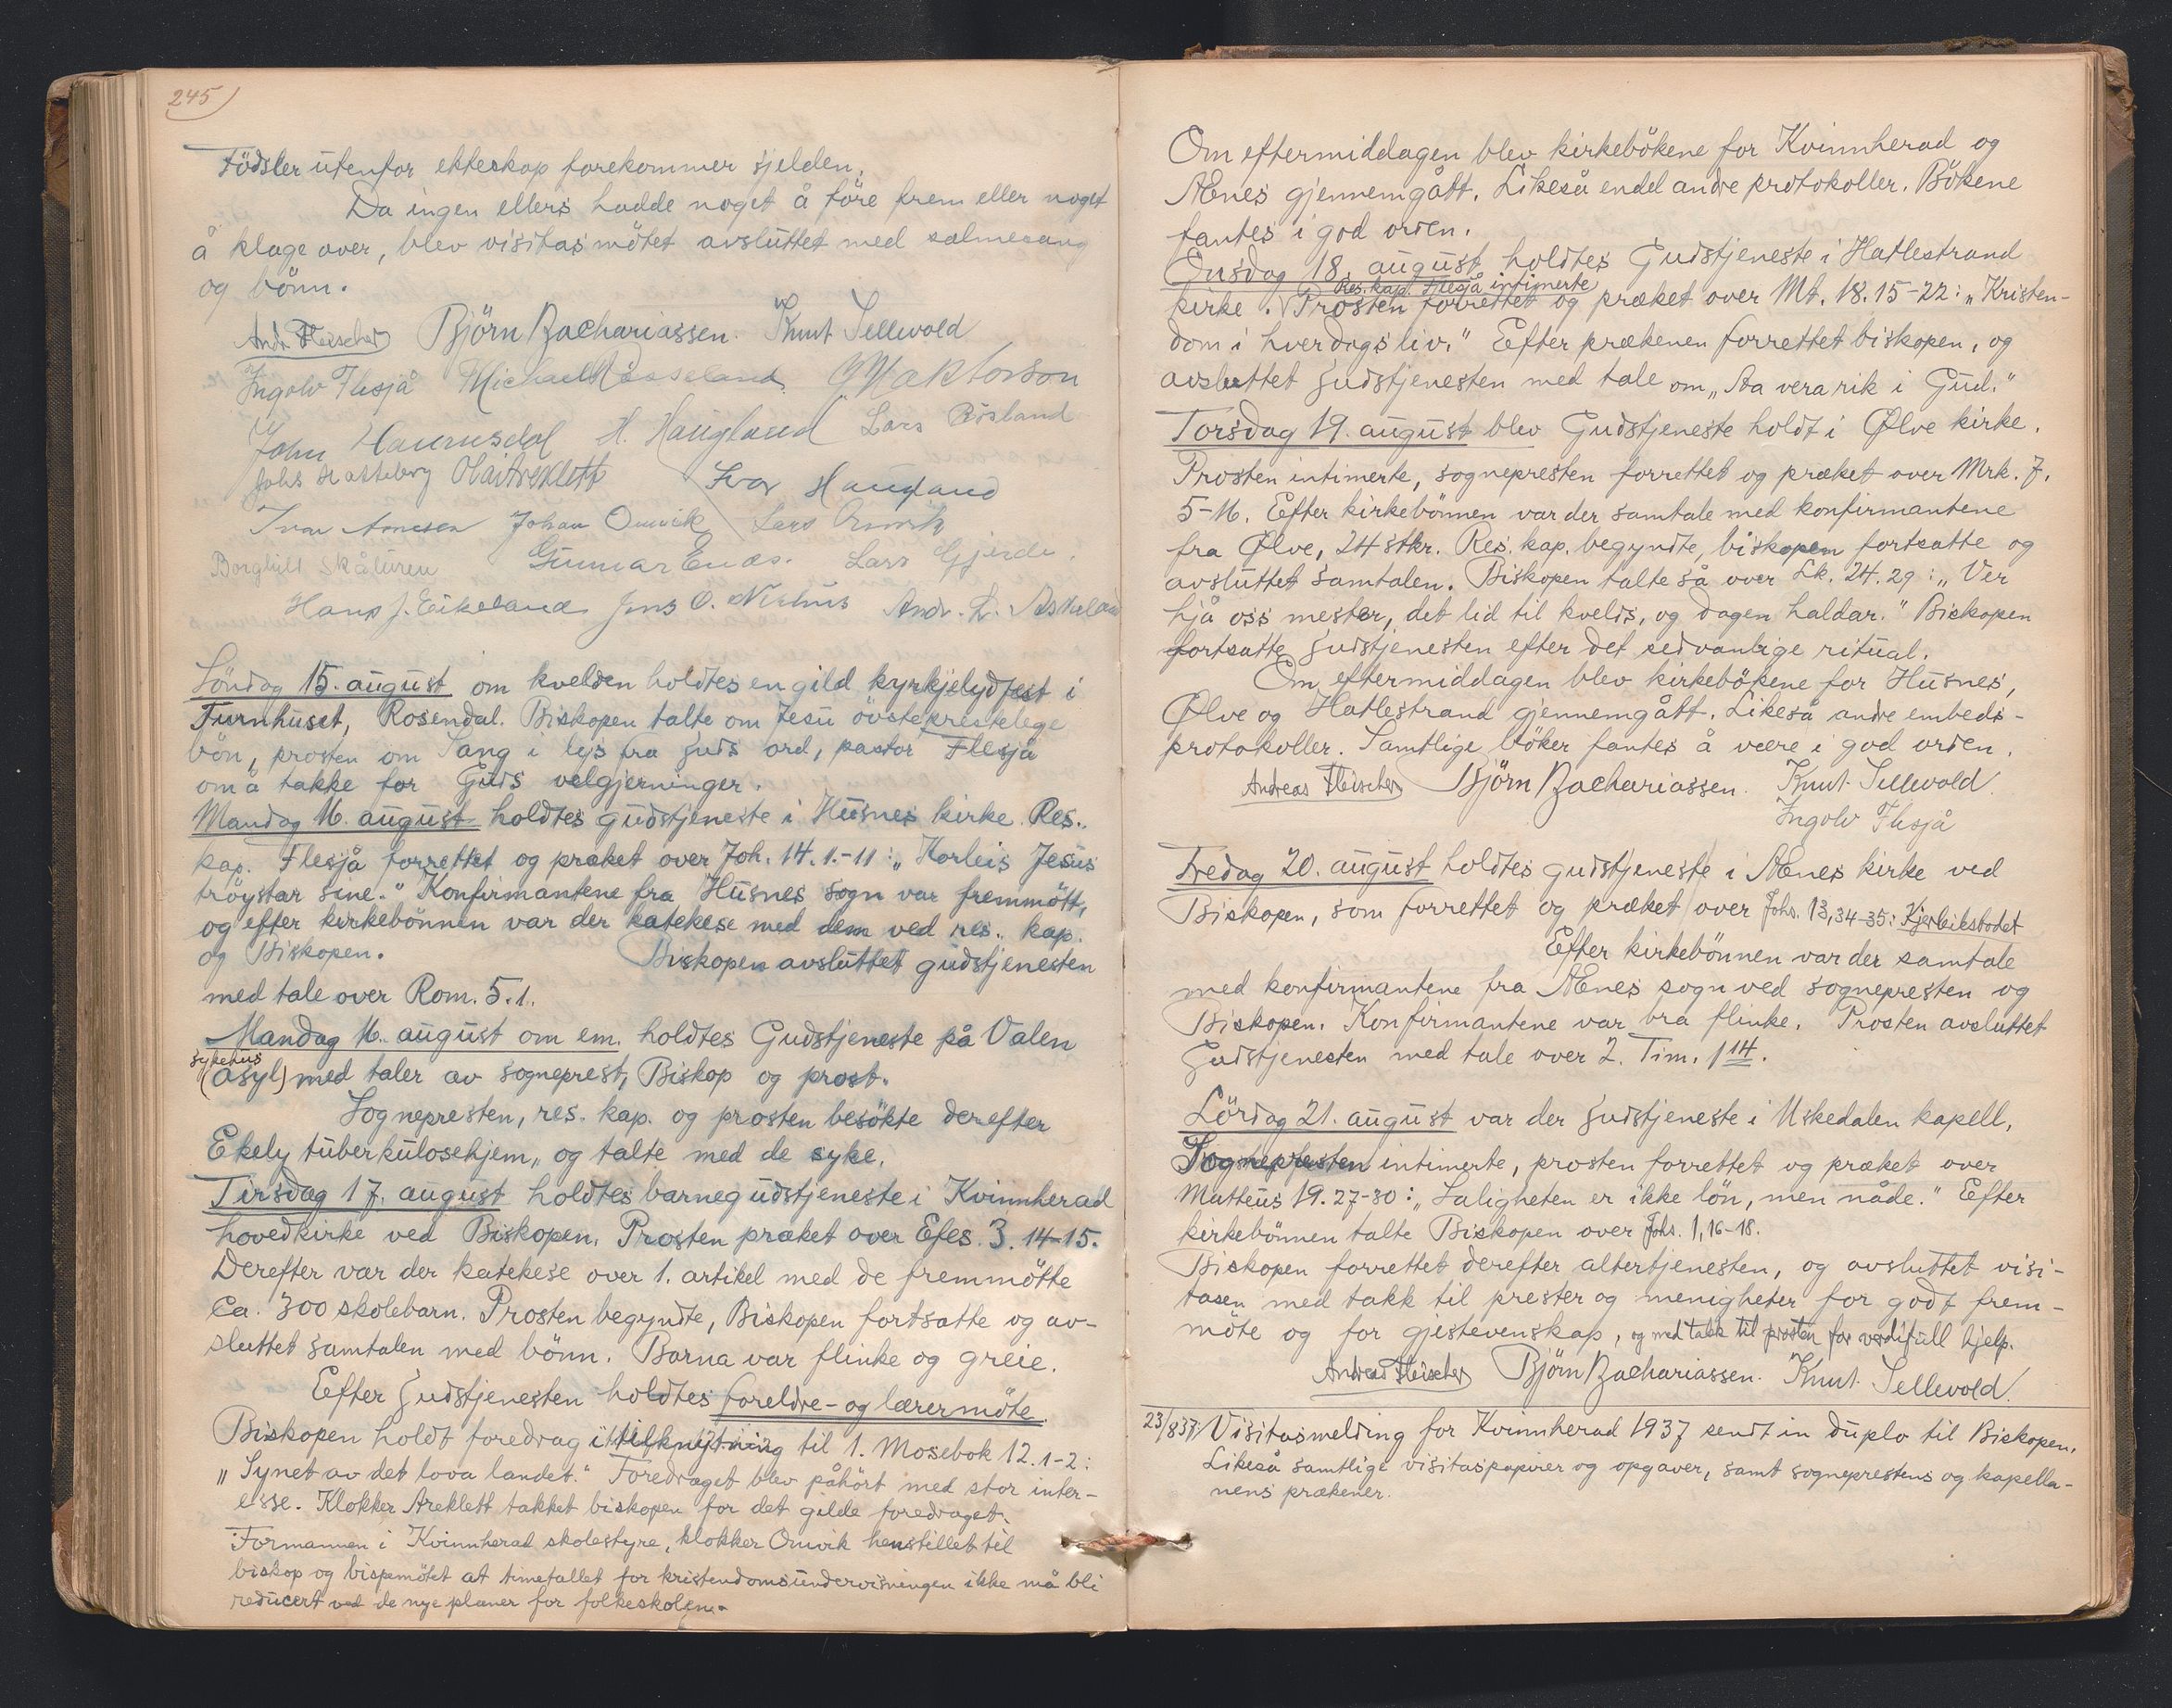 245)
Födsler utenfor ekteskap forekommer sjelden.
Da ingen ellers hadde noget å före frem eller noget
å klage over, blev visitasmötet avsluttet med salmesang
og bönn.
Andr. Fleischer Björn Zachariassen. Knut Sellevold
Ingolv Flesjå Michael
John H. Haugland Lars
Johs Hatteberg Ivar Haugland
Ivar Arnesen Johan Omvik Lars Omvik
Borghild Skåluren Gunnar Enæs. Lars Gjerde.
Hans J. Eikeland Jens O. Nerhus Andr. L.
Söndag 15. august om kvelden holdtes en gild kyrkjelydfest i
Turnhuset, Rosendal. Biskopen talte om Jesu övsteprestelege
bön, prosten om Sang i lys fra Guds ord, pastor Flesjå
om å takke for Guds velgjerninger.
Mandag 16. august holdtes gudstjeneste i Husnes kirke. Res.
kap. Flesjå forrettet og præket over Joh. 14.1.-11: „Korleis Jesus
tröystar sine.” Konfirmantene fra Husnes sogn var fremmött,
og efter kirkebönnen var der katekese med dem ved res. kap.
og Biskopen. Biskopen avsluttet gudstjenesten
med tale over Rom. 5.1.
Mandag 16. august om em. holdtes Gudstjeneste på Valen
sykehus
(asyl) med taler av sogneprest, Biskop og prost.
Sognepresten, res. kap. og prosten besökte derefter
Ekely tuberkulosehjem„ og talte med de syke.
Tirsdag 17. august holdtes barnegudstjeneste i Kvinnherad
hovedkirke ved Biskopen. Prosten præket over Efes. 3. 14-15.
Derefter var der katekese over 1. artikel med de fremmötte
Ca. 300 skolebarn. Prosten begyndte, Biskopen fortsatte og av-
sluttet samtalen med bönn. Barna var flinke og greie.
Efter Gudstjenesten holdtes foreldre- og lærermöte.
Biskopen holdt foredrag i tilknytning til 1. Mosebok 12.1-2:
„Synet av det lova landet.” Foredraget blev påhört med stor inter-
esse. Klokker Areklett takket biskopen for det gilde foredraget.
Formannen i Kvinnherad skolestyre, klokker Omvik henstillet til
biskop og bispemötet at timetallet for kristendomsundervisningen ikke må bli
reducert ved de nye planer for folkeskolen.
Om eftermiddagen blev kirkebökene for Kvinnherad og
Ænes gjennemgått. Likeså endel andre protokoller. Bökene
fantes i god orden.
Onsdag 18. august holdtes Gudstjeneste i Hatlestrand
Res. kap. Flesjå intimerte
kirke. Prosten forrettet og præket over Mt. 18.15-22: „Kristen-
dom i hverdagsliv.” Efter prækenen forrettet biskopen, og
avsluttet Gudstjenesten med tale om „Aa vera rik i Gud.”
Torsdag 19. august blev Gudstjeneste holdt i Ølve kirke.
Prosten intimerte, sognepresten forrettet og præket over Mrk. 7.
5-16. Efter kirkebönnen var der samtale med konfirmantene
fra Ølve, 24 stkr. Res. kap. begyndte, biskopen fortsatte og
avsluttet samtalen. Biskopen talte så over Lk. 24.29: „Ver
hjå oss mester, det lid til kvelds, og dagen haldar.” Biskopen
fortsatte Gudstjenesten efter det sedvanlige ritual.
Om eftermiddagen blev kirkebökene for Husnes,
Ølve og Hatlestrand gjennemgått. Likeså andre embeds-
protokoller. Samtlige böker fantes å være i god orden.
Andreas Fleischer Björn Zachariassen. Knut Sellevold.
Ingolv Flesjå
Fredag 20. august holdtes gudstjeneste i Ænes kirke ved
Biskopen, som forrettet og præket over Johs. 13,34-35: Kjerleiksbodet
Efter kirkebönnen var der samtale
med konfirmantene fra Ænes sogn ved sognepresten og
Biskopen. Konfirmantene var bra flinke. Prosten avsluttet
Gudstjenesten med tale over 2. Tim. 1 14.
Lördag 21. august var der Gudstjeneste i Uskedalen kapell,
Sognepresten intimerte, prosten forrettet og præket over
Matteus 19.27-30: „Saligheten er ikke lön, men nåde.” Efter
kirkebönnen talte Biskopen over Johs. 1,16-18.
Biskopen forrettet derefter altertjenesten, og avsluttet visi-
tasen med takk til prester og menigheter for godt frem-
möte og for gjestevenskap, og med takk til prosten for verdifull hjelp.
Andreas Fleischer Björn Zachariassen. Knut Sellevold.
23/8 37: Visitasmelding for Kvinnherad 1937 sendt in duplo til Biskopen.
Likeså samtlige visitaspapirer og opgaver, samt sogneprestens og kapella-
nens prækener.